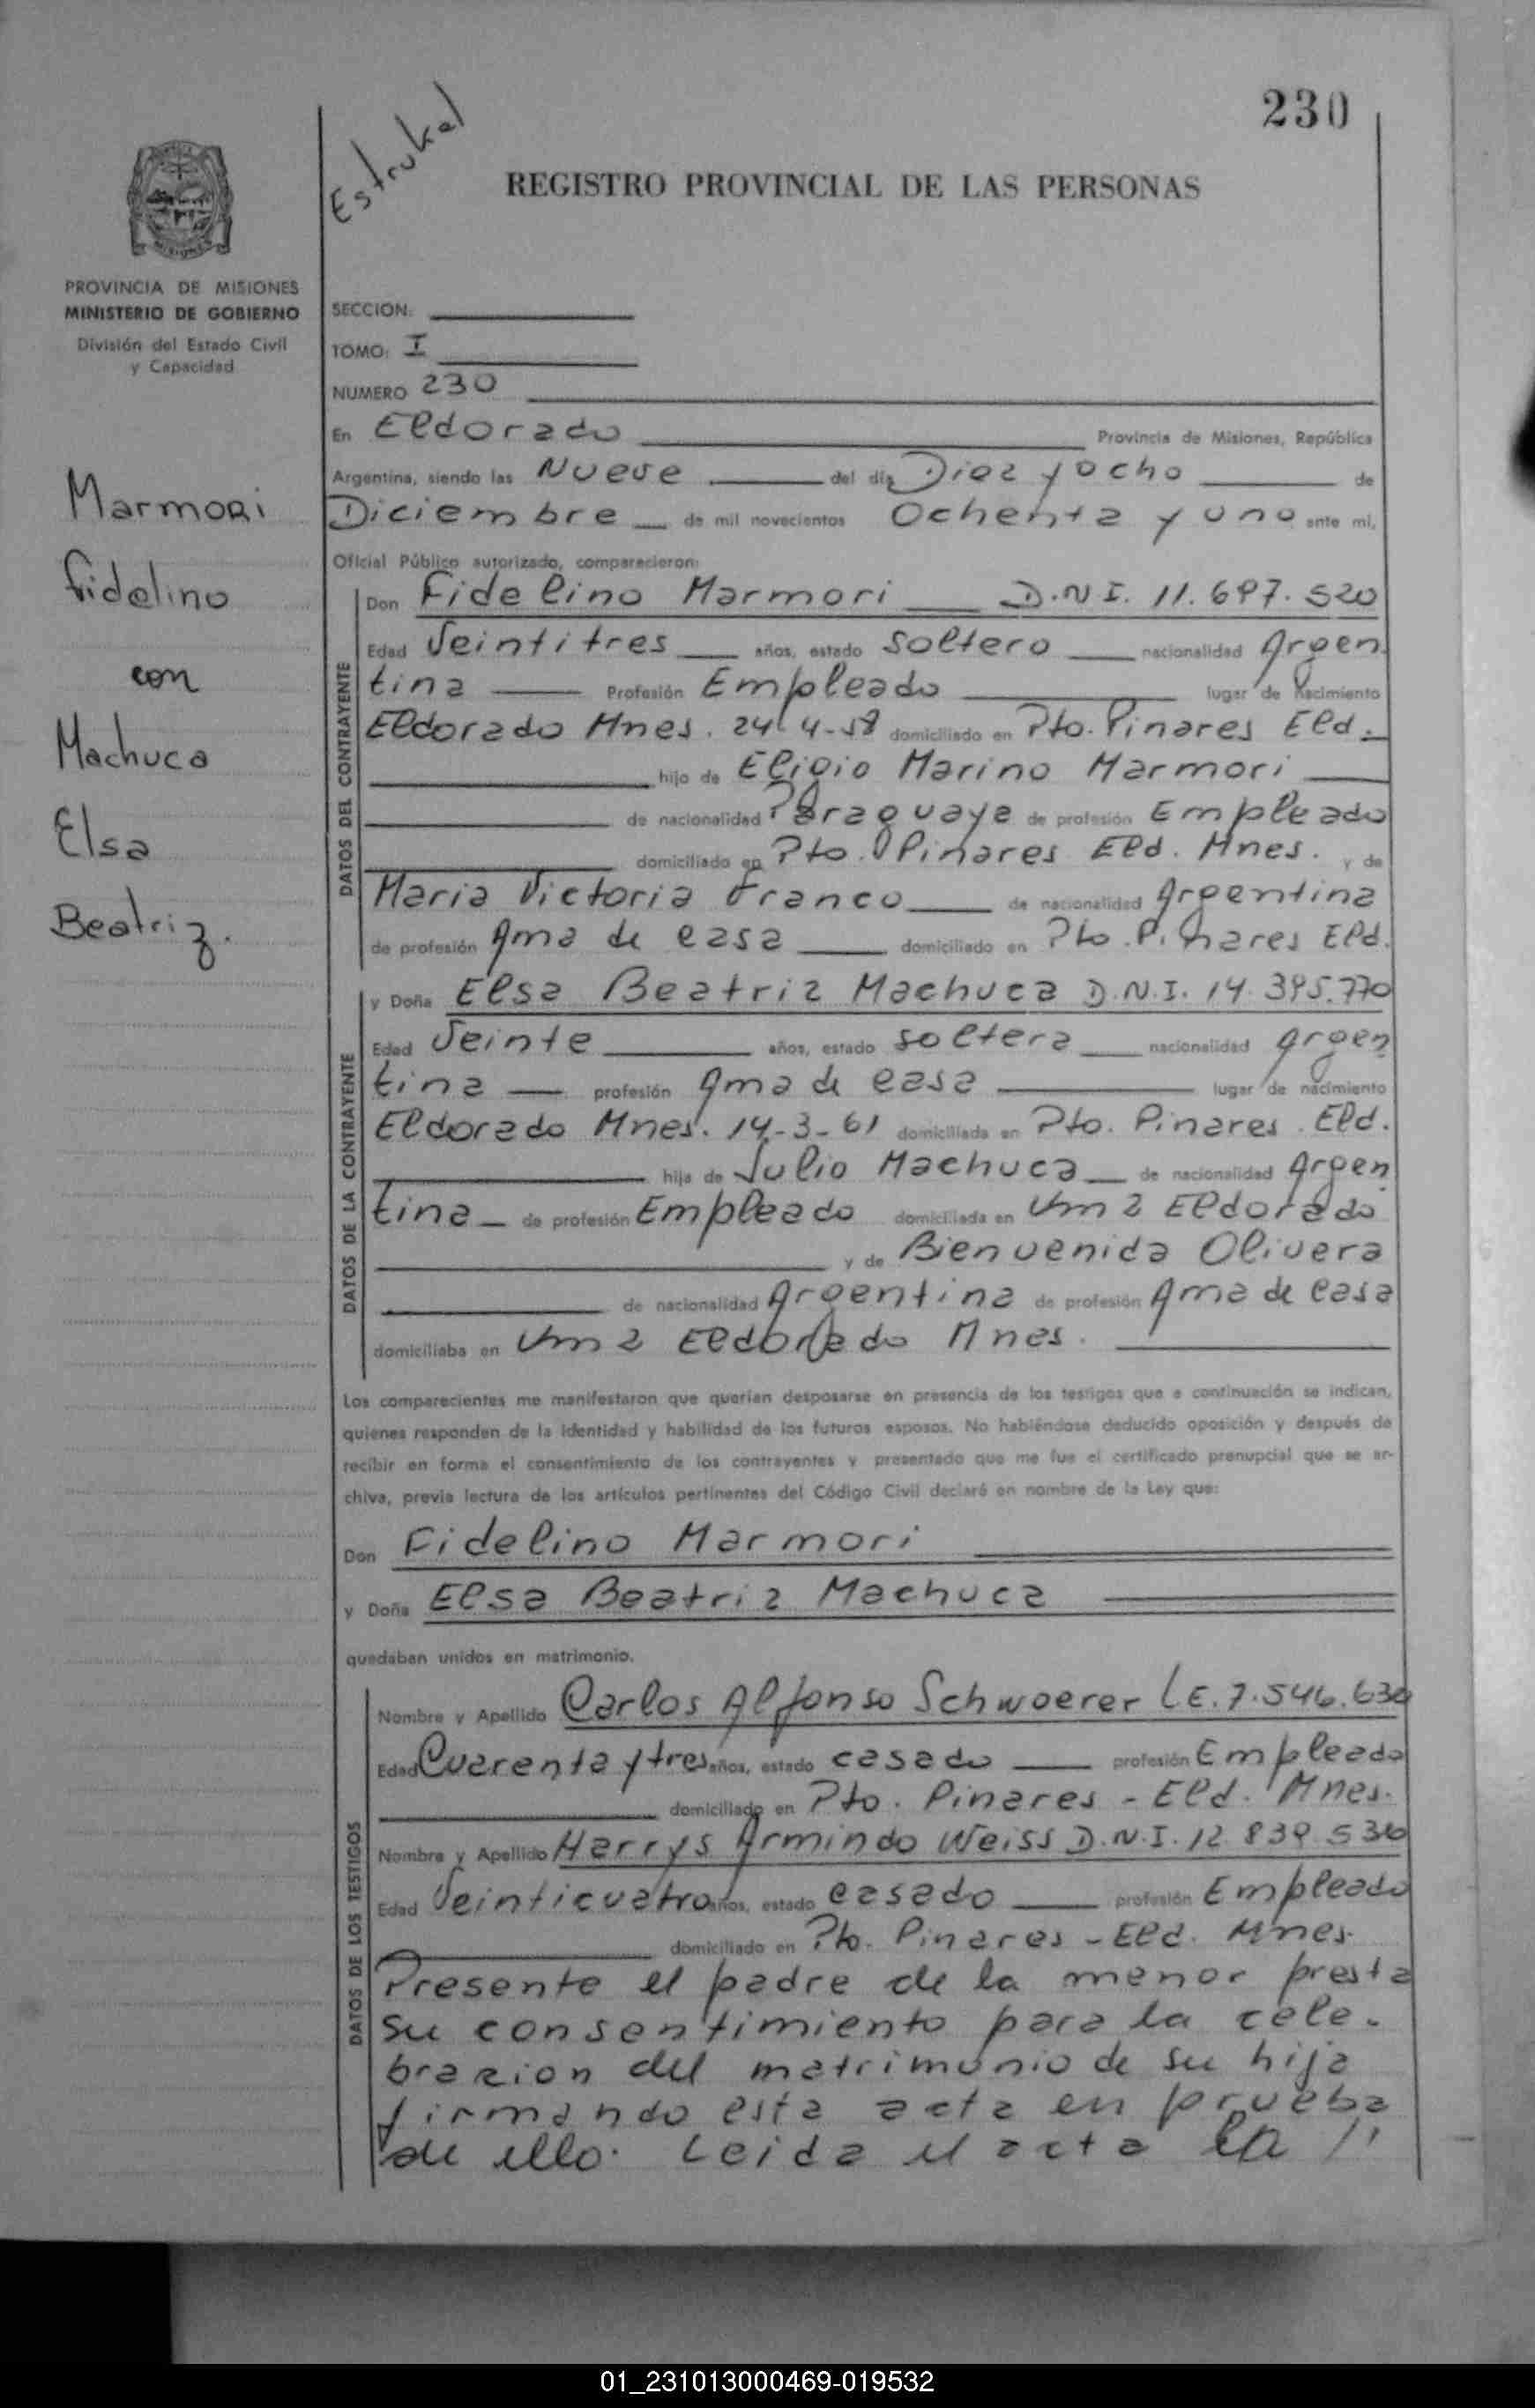 230
Estrukel
REGISTRO PROVINCIAL DE LAS PERSONAS
MISIONES
PROVINCIA DE MISIONES
MINISTERIO DE GOBIERNO
División del Estado Civil
y Capacidad
Marmori
Fidelino
con
Machuca
Elsa
Beatriz.
SECCION:
TOMO: I
NUMERO 230
En Eldorado Provincia de Misiones, República
Argentina, siendo las Nueve del día Diez y ocho de
Diciembre de mil novecientos Ochenta y uno ante mí,
Oficial Público autorizado, comparecieron:
DATOS DEL CONTRAYENTE
Don Fidelino Marmori D.N.I. 11.697.520
Edad Veintitres años, estado Soltero nacionalidad Argen
tina Profesión Empleado lugar de nacimiento
Eldorado Mnes. 24-4-58 domiciliado en Pto. Pinares Eld.
hijo de Eligio Marino Marmori
de nacionalidad Paraguaya de profesión Empleado
domiciliado en Pto. Pinares Eld. Mnes. y de
Maria Victoria Franco de nacionalidad Argentina
de profesión Ama de casa domiciliado en Pto. Pinares Eld.
DATOS DE LA CONTRAYENTE
y Doña Elsa Beatriz Machuca D.N.I. 14.395.770
Edad Veinte años, estado soltera nacionalidad Argen
tina profesión Ama de casa lugar de nacimiento
Eldorado Mnes. 14-3-61 domiciliada en Pto. Pinares. Eld.
hija de Julio Machuca de nacionalidad Argen
tina de profesión Empleado domiciliada en Km 2 Eldorado
y de Bienvenida Olivera
de nacionalidad Argentina de profesión Ama de casa
domiciliaba en Km 2 Eldorado Mnes.
Los comparecientes me manifestaron que querían desposarse en presencia de los testigos que a continuación se indican,
quienes responden de la identidad y habilidad de los futuros esposos. No habiéndose deducido oposición y después de
recibir en forma el consentimiento de los contrayentes y presentado que me fue el certificado prenupcial que se ar-
chiva, previa lectura de los artículos pertinentes del Código Civil declaré en nombre de la Ley que:
Don Fidelino Marmori
y Doña Elsa Beatriz Machuca
quedaban unidos en matrimonio.
DATOS DE LOS TESTIGOS
Nombre y Apellido Carlos Alfonso Schwoerer L.E. 7.546.630
Edad Cuarenta y tres años, estado casado profesión Empleado
domiciliado en Pto. Pinares - Eld. Mnes.
Nombre y Apellido Harrys Armindo Weiss D.N.I. 12.839.536
Edad Veinticuatro años, estado casado profesión Empleado
domiciliado en Pto. Pinares - Eld. Mnes.
Presente el padre de la menor presta
su consentimiento para la cele-
brazion del matrimonio de su hija
firmando esta acta en prueba
de ello. Leida el acta la //
01_231013000469-019532